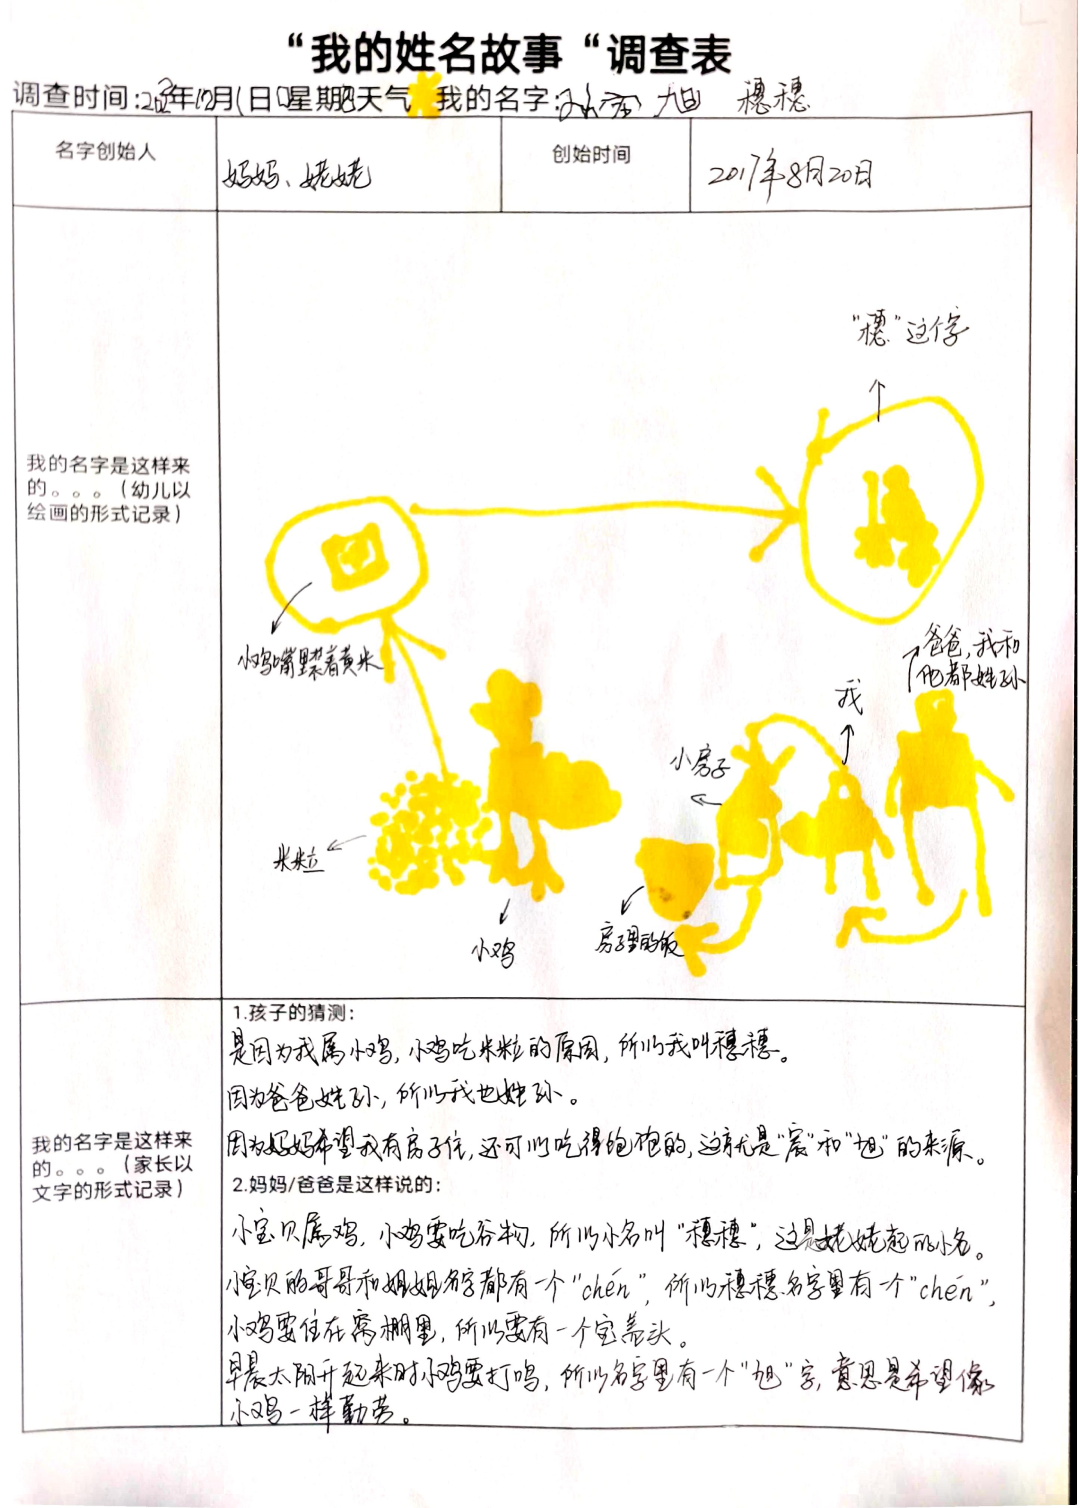 “我的姓名故事“调查表
调查时间:2023年12月1日星期五天气 我的名字:孙宸旭 穗穗
名字创始人
妈妈、姥姥
创始时间
2017年8月20日
我的名字是这样来
的。。。（幼儿以
绘画的形式记录）
“穗”这个字
小鸡嘴里装着黄米
爸爸,我和
他都姓孙
我
小房子
米粒
小鸡
房子里的饭
我的名字是这样来
的。。。（家长以
文字的形式记录）
1.孩子的猜测:
是因为我属小鸡,小鸡吃米粒的原因,所以我叫穗穗。
因为爸爸姓孙,所以我也姓孙。
因为妈妈希望我有房子住,还可以吃得饱饱的,这就是“宸”和“旭”的来源。
2.妈妈/爸爸是这样说的:
小宝贝属鸡,小鸡要吃谷物,所以小名叫“穗穗”,这是姥姥起的小名。
小宝贝的哥哥和姐姐名字都有一个“chén”,所以穗穗名字里有一个“chén”,
小鸡要住在窝棚里,所以要有一个宝盖头。
早晨太阳升起来时小鸡要打鸣,所以名字里有一个“旭”字,意思是希望像
小鸡一样勤劳。